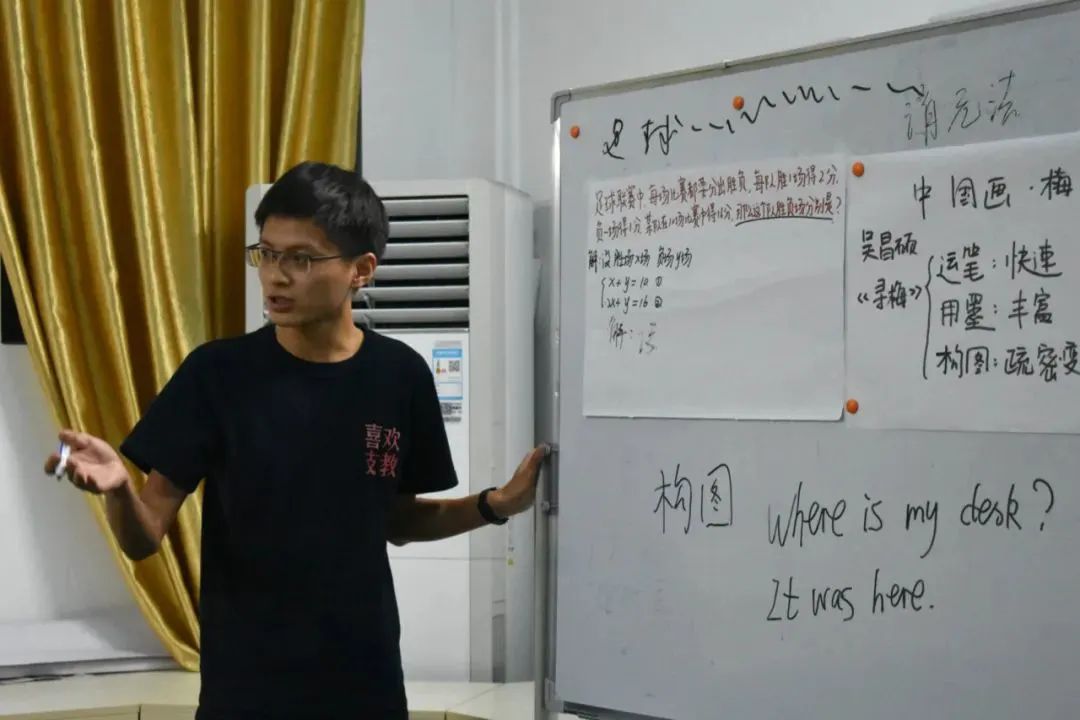 足球
消元法
足球联赛中,每场比赛都要分出胜负,每队胜1场得2分,
负一场得1分,某队在10场比赛中得16分,那么这个队胜负场分别是?
解 设胜场x场 负场y场
x+y=10 ①
2x+y=16 ②
解:
中国画·梅
吴昌硕
《寻梅》
运笔:快速
用墨:丰富
构图:疏密变
构图
Where is my desk?
It was here.
喜欢
支教